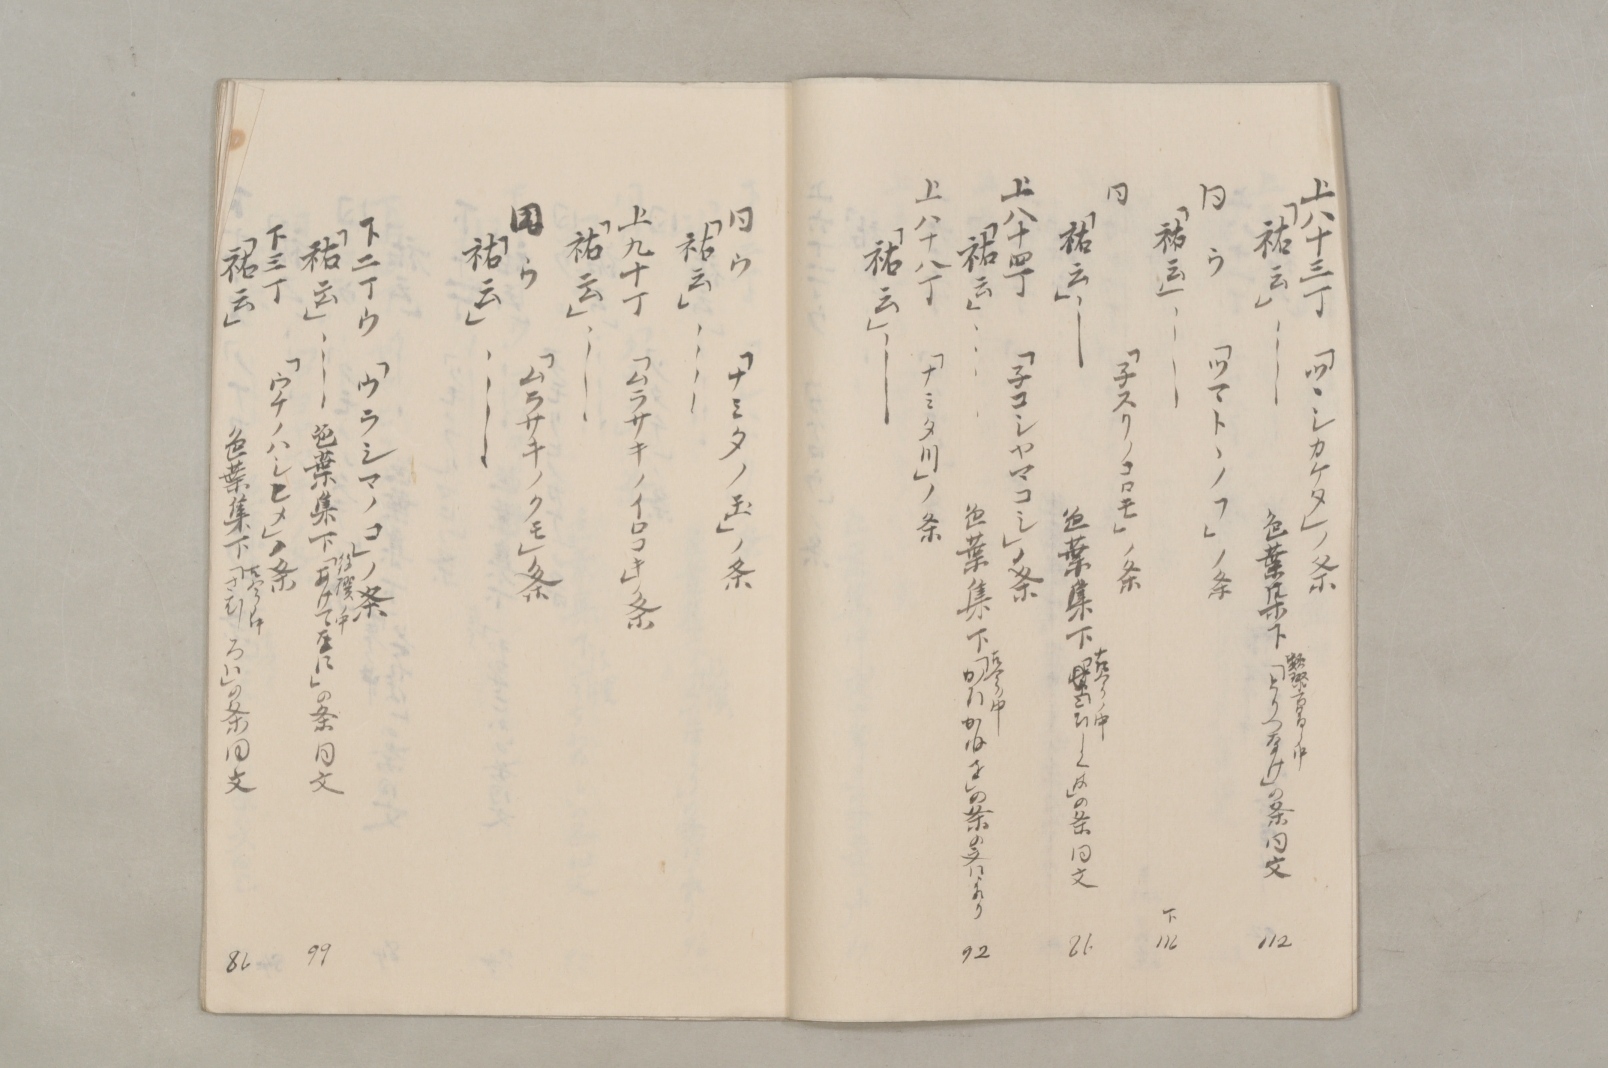 上八十三丁 「ツヽシカケタ」ノ条
「祐云」、――― 色葉集下「とりつなけ」の条同文 112
同ウ 「ツマトヽノコ」ノ条
「祐云」、――― 下 112
同 「子スリノコロモ」ノ条
「祐云」、――― 色葉集下 の条同文 86
上八十四丁 「子コシヤマコシ」ノ条
「祐云」、―― 色葉集下 の条の文にあり 92
上八十八丁 「ナミタ川」ノ条
「祐云」、―――
同ウ 「ナミタノ玉」ノ条
「祐云」、―――
上九十丁 「ムラサキノイロコキ」ノ条
「祐云」、―――
同ウ 「ムラサキノクモ」ノ条
「祐云」、―――
下二丁ウ 「ウラシマノコ」ノ条
「祐云」、――― 色葉集下「あけて」の条同文 99
下三丁 「ウチノハシヒメ」ノ条
「祐云」 色葉集下 の条同文 86